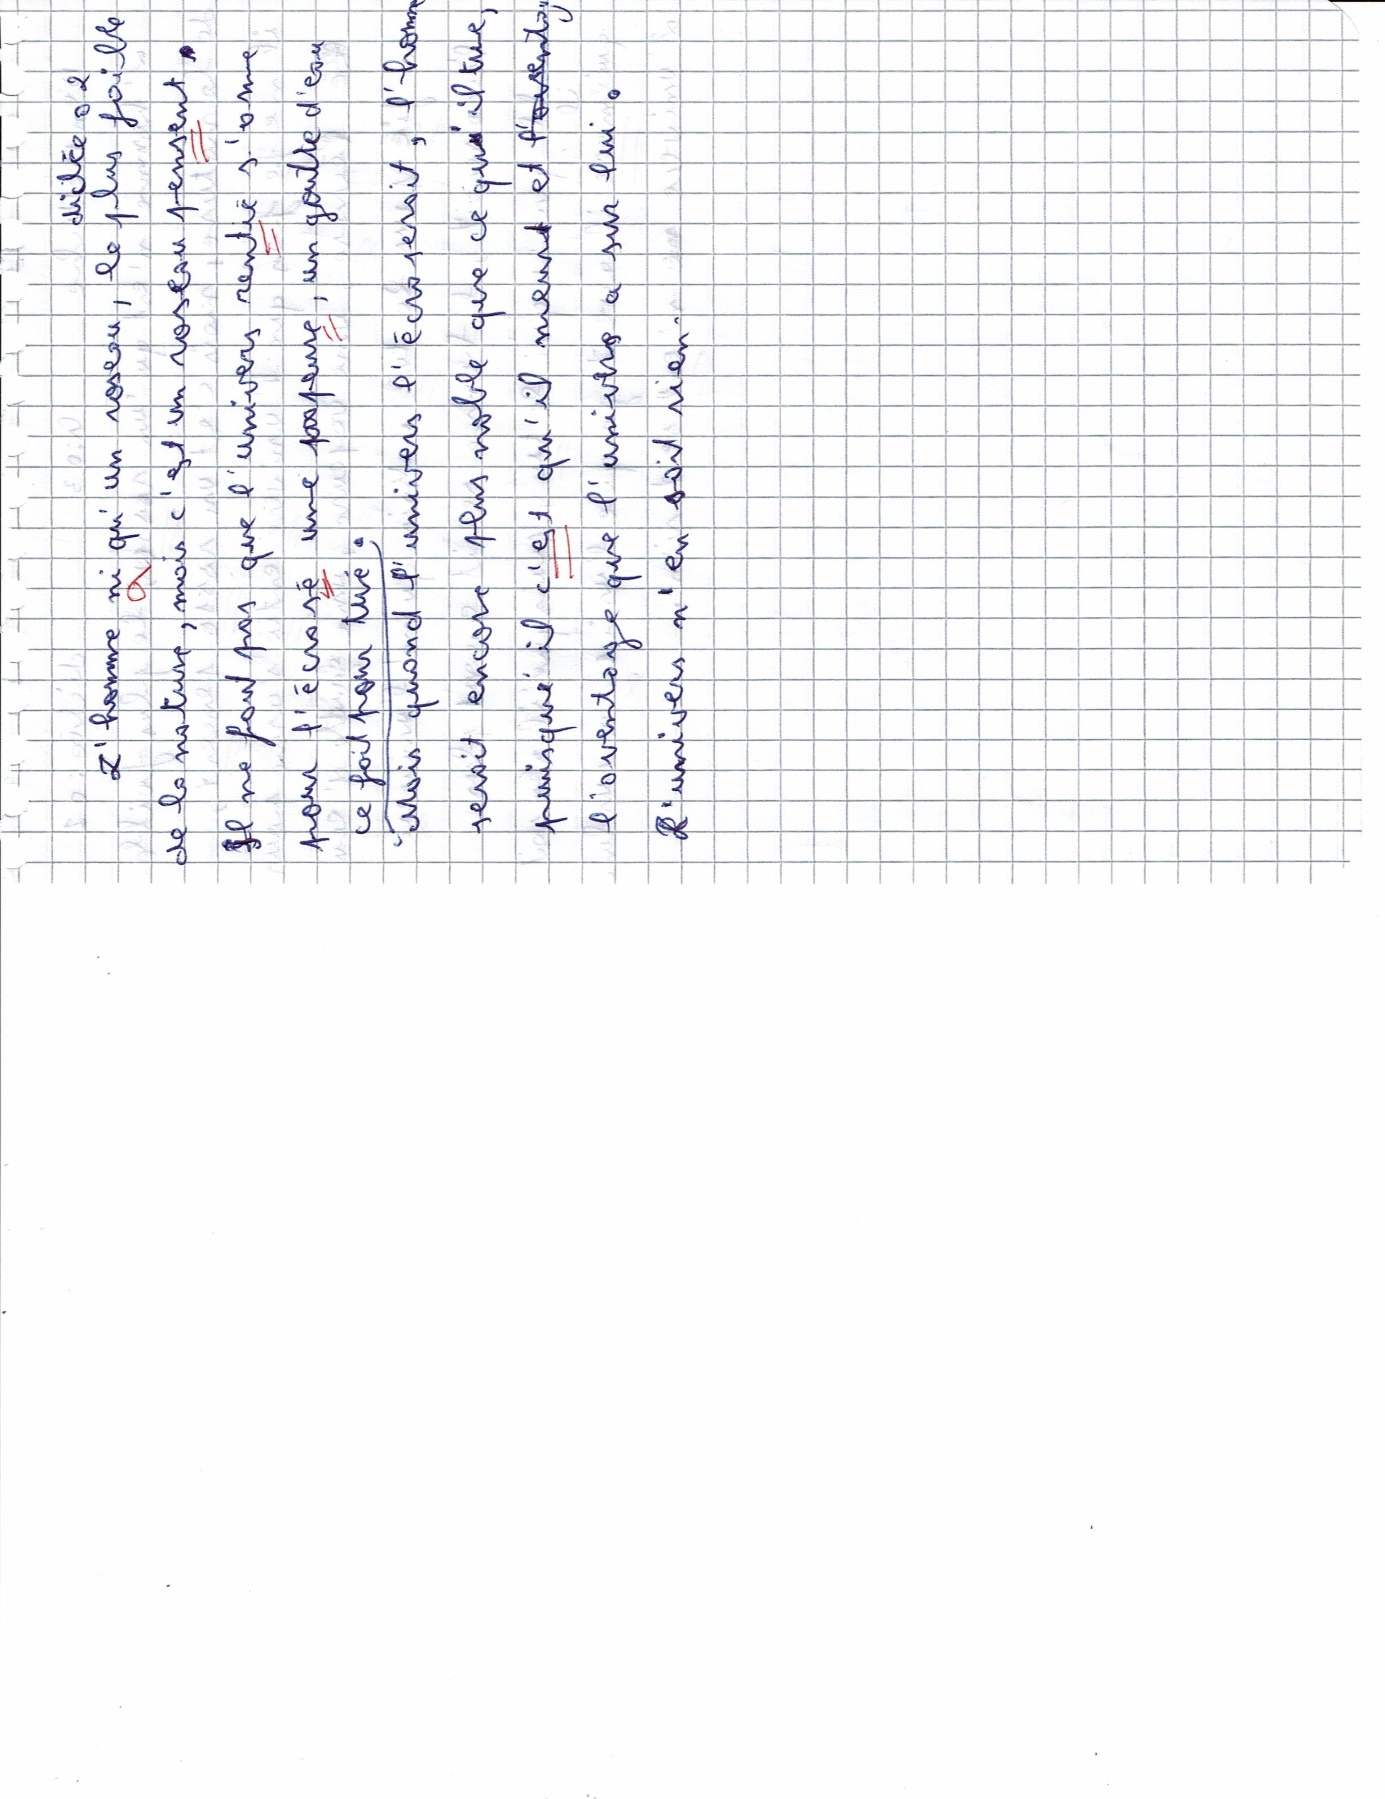 dictée 02
L'homme ni qu'un roseau, le plus faible
de la nature, mais c'est un roseau pensent.
Il ne faut pas que l'univers rentié s'arme
pour l'écrasé une papeure, un goutte d'eau
ce fait pour tué.
Mais quand l'univers l'écraserait, l'homme
serait encore plus noble que ce qu'il tue,
puisqué il c'est qu'il meurt et l'aventag
l'aventage que l'univers a sur lui.
L'univers n'en sait rien.